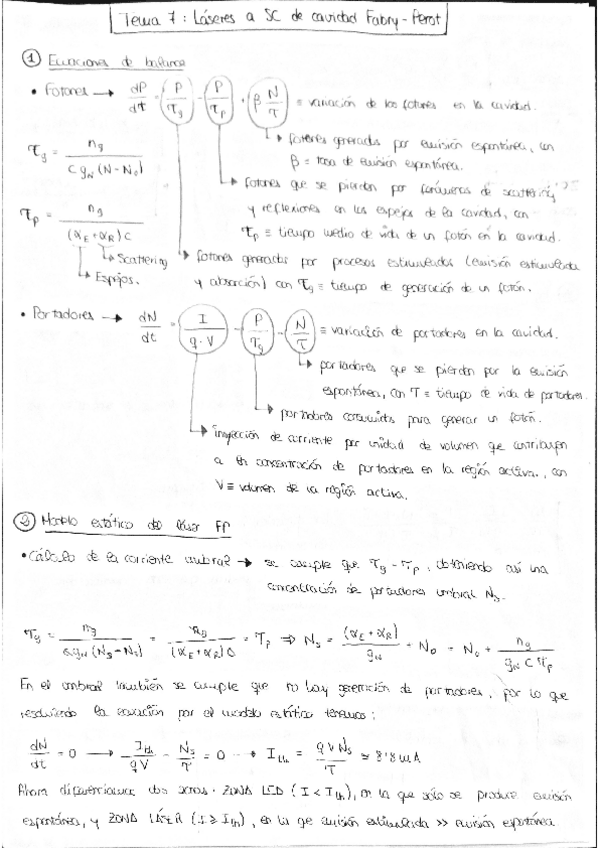 Tema 7: Láseres a SC de cavidad Fabry-Perot
① Ecuaciones de balance
• Fotones → dP/dt = P/τg - P/τp + β N/τ ≡ variación de los fotones en la cavidad.
↳ fotones generados por emisión espontánea, con
β ≡ tasa de emisión espontánea.
τg = ng / (c gN (N-N0))
↳ fotones que se pierden por fenómenos de scattering
y reflexiones en los espejos de la cavidad, con
τp ≡ tiempo medio de vida de un fotón en la cavidad.
τp = ng / ((αE+αR) c)
↳ Scattering
↳ Espejos.
↳ fotones generados por procesos estimulados (emisión estimulada
y absorción) con τg ≡ tiempo de generación de un fotón.
• Portadores → dN/dt = I/(q·V) - P/τg - N/τ ≡ variación de portadores en la cavidad.
↳ portadores que se pierden por la emisión
espontánea, con τ ≡ tiempo de vida de portadores.
↳ portadores consumidos para generar un fotón.
↳ inyección de corriente por unidad de volumen que contribuyen
a la concentración de portadores en la región activa., con
V ≡ volumen de la región activa.
② Modelo estático del láser FP
• Cálculo de la corriente umbral → se cumple que τg = τp, obteniendo así una
concentración de portadores umbral Ns.
τg = ng / (c gN (Ns-N0)) = ng / ((αE+αR) c) = τp ⇒ Ns = (αE+αR)/gN + N0 = N0 + ng/(gN c τp)
En el umbral también se cumple que no hay generación de portadores, por lo que
resolviendo la ecuación por el modelo estático tenemos:
dN/dt = 0 → Ith/(qV) - Ns/τ = 0 → Ith = qVNs/τ ≃ 8'8 mA
Ahora diferenciamos dos zonas: ZONA LED (I < Ith), en la que sólo se produce emisión
espontánea, y ZONA LÁSER (I ≥ Ith), en la que emisión estimulada >> emisión espontánea.